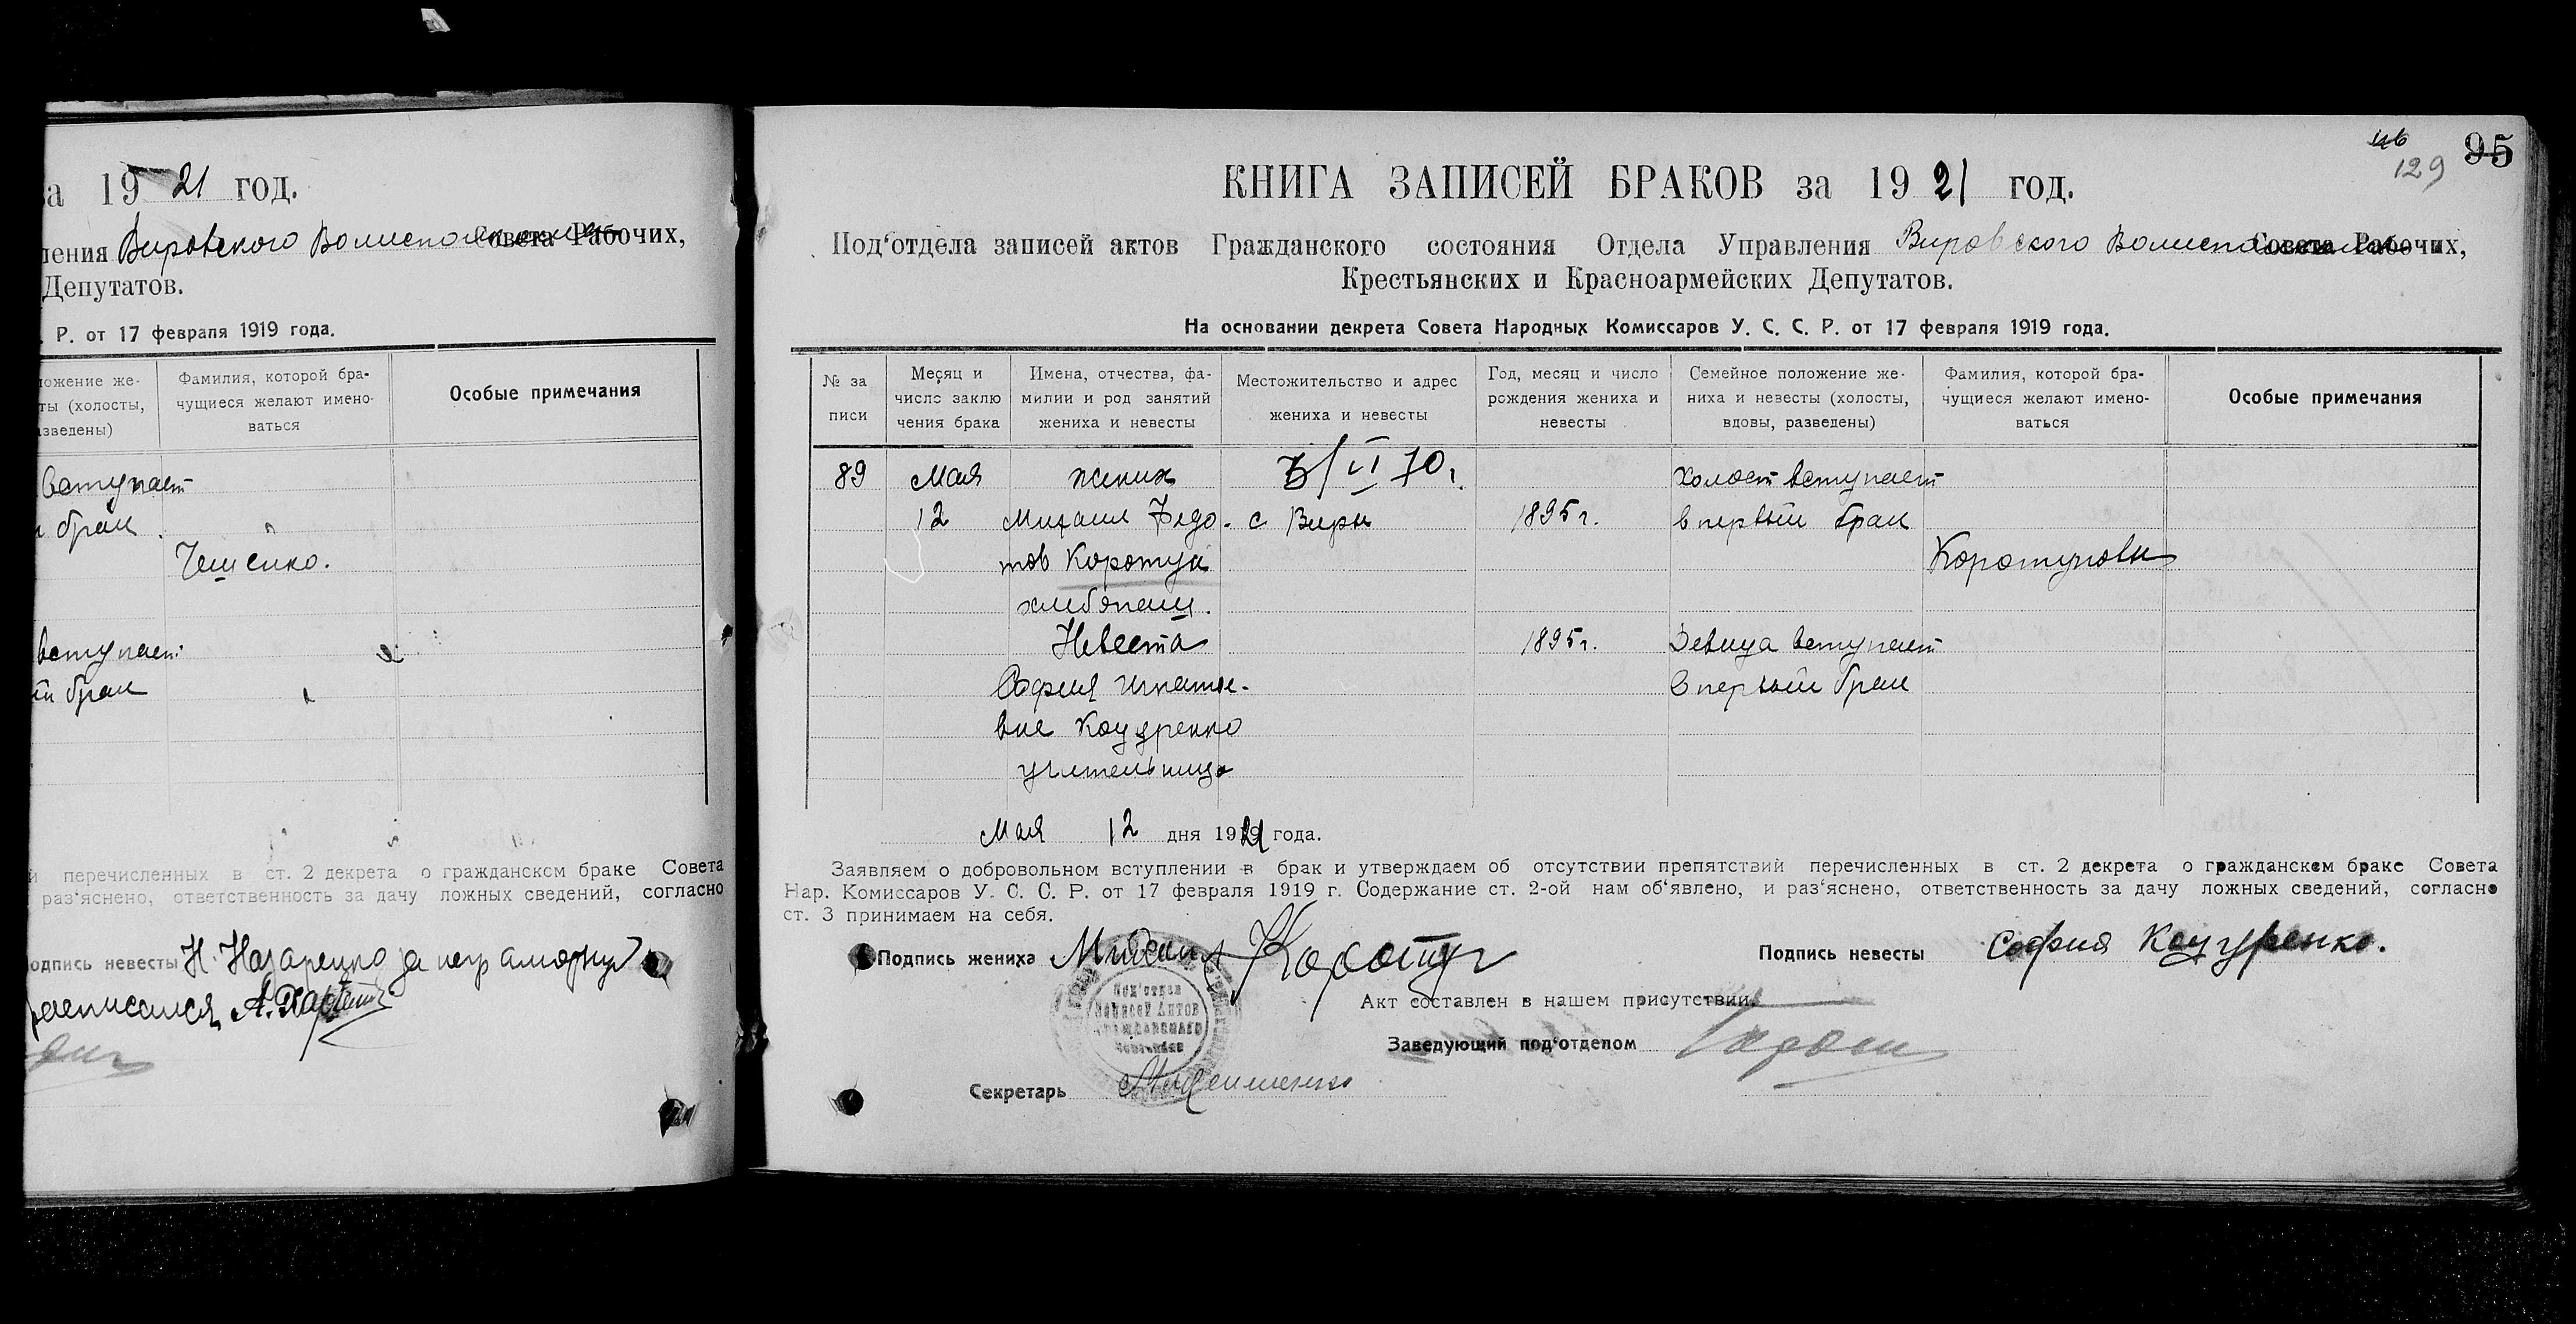 за 1921 год.
ления Вировского Волисполкома Совета Рабочих,
Депутатов.
. Р. от 17 февраля 1919 года.
ложение же-
ты (холосты,
азведены)
Фамилия, которой бра-
чущиеся желают имено-
ваться
Особые примечания
вступает
й брак
Чешенко.
вступает
ий брак
й перечисленных в ст. 2 декрета о гражданском браке Совета
раз'яснено, ответственность за дачу ложных сведений, согласно
одпись невесты Н. Назаренко за неграмотную
расписался А.
46
129
95
КНИГА ЗАПИСЕЙ БРАКОВ за 1921 год.
Под'отдела записей актов Гражданского состояния Отдела Управления Вировского Волисполкома Совета Рабочих,
Крестьянских и Красноармейских Депутатов.
На основании декрета Совета Народных Комиссаров У. С. С. Р. от 17 февраля 1919 года.
№ за
писи
Месяц и
число заклю
чения брака
Имена, отчества, фа-
милии и род занятий
жениха и невесты
Местожительство и адрес
жениха и невесты
Год, месяц и число
рождения жениха и
невесты
Семейное положение же-
ниха и невесты (холосты,
вдовы, разведены)
Фамилия, которой бра-
чущиеся желают имено-
ваться
Особые примечания
89 Мая жених VI 70, Холост вступает
12 Михаил Федо- с Виры 1895 г. в первый брак
тов Коротун Коротуновы
хлибопаш.
Невеста 1895 г. Девица вступает
София Игнатье- в первый брак
вне Коцуренко
учительница
Мая 12 дня 1921 года.
Заявляем о добровольном вступлении в брак и утверждаем об отсутствии препятствий перечисленных в ст. 2 декрета о гражданском браке Совета
Нар. Комиссаров У. С. С. Р. от 17 февраля 1919 г. Содержание ст. 2-ой нам об'явлено, и раз'яснено, ответственность за дачу ложных сведений, согласно
ст. 3 принимаем на себя.
Подпись жениха Михаил Коротун Подпись невесты София Коцуренко.
Под'отдел
Записей Актов
Гражданского
Состояния
Акт составлен в нашем присутствии.
Заведующий под'отделом
Секретарь